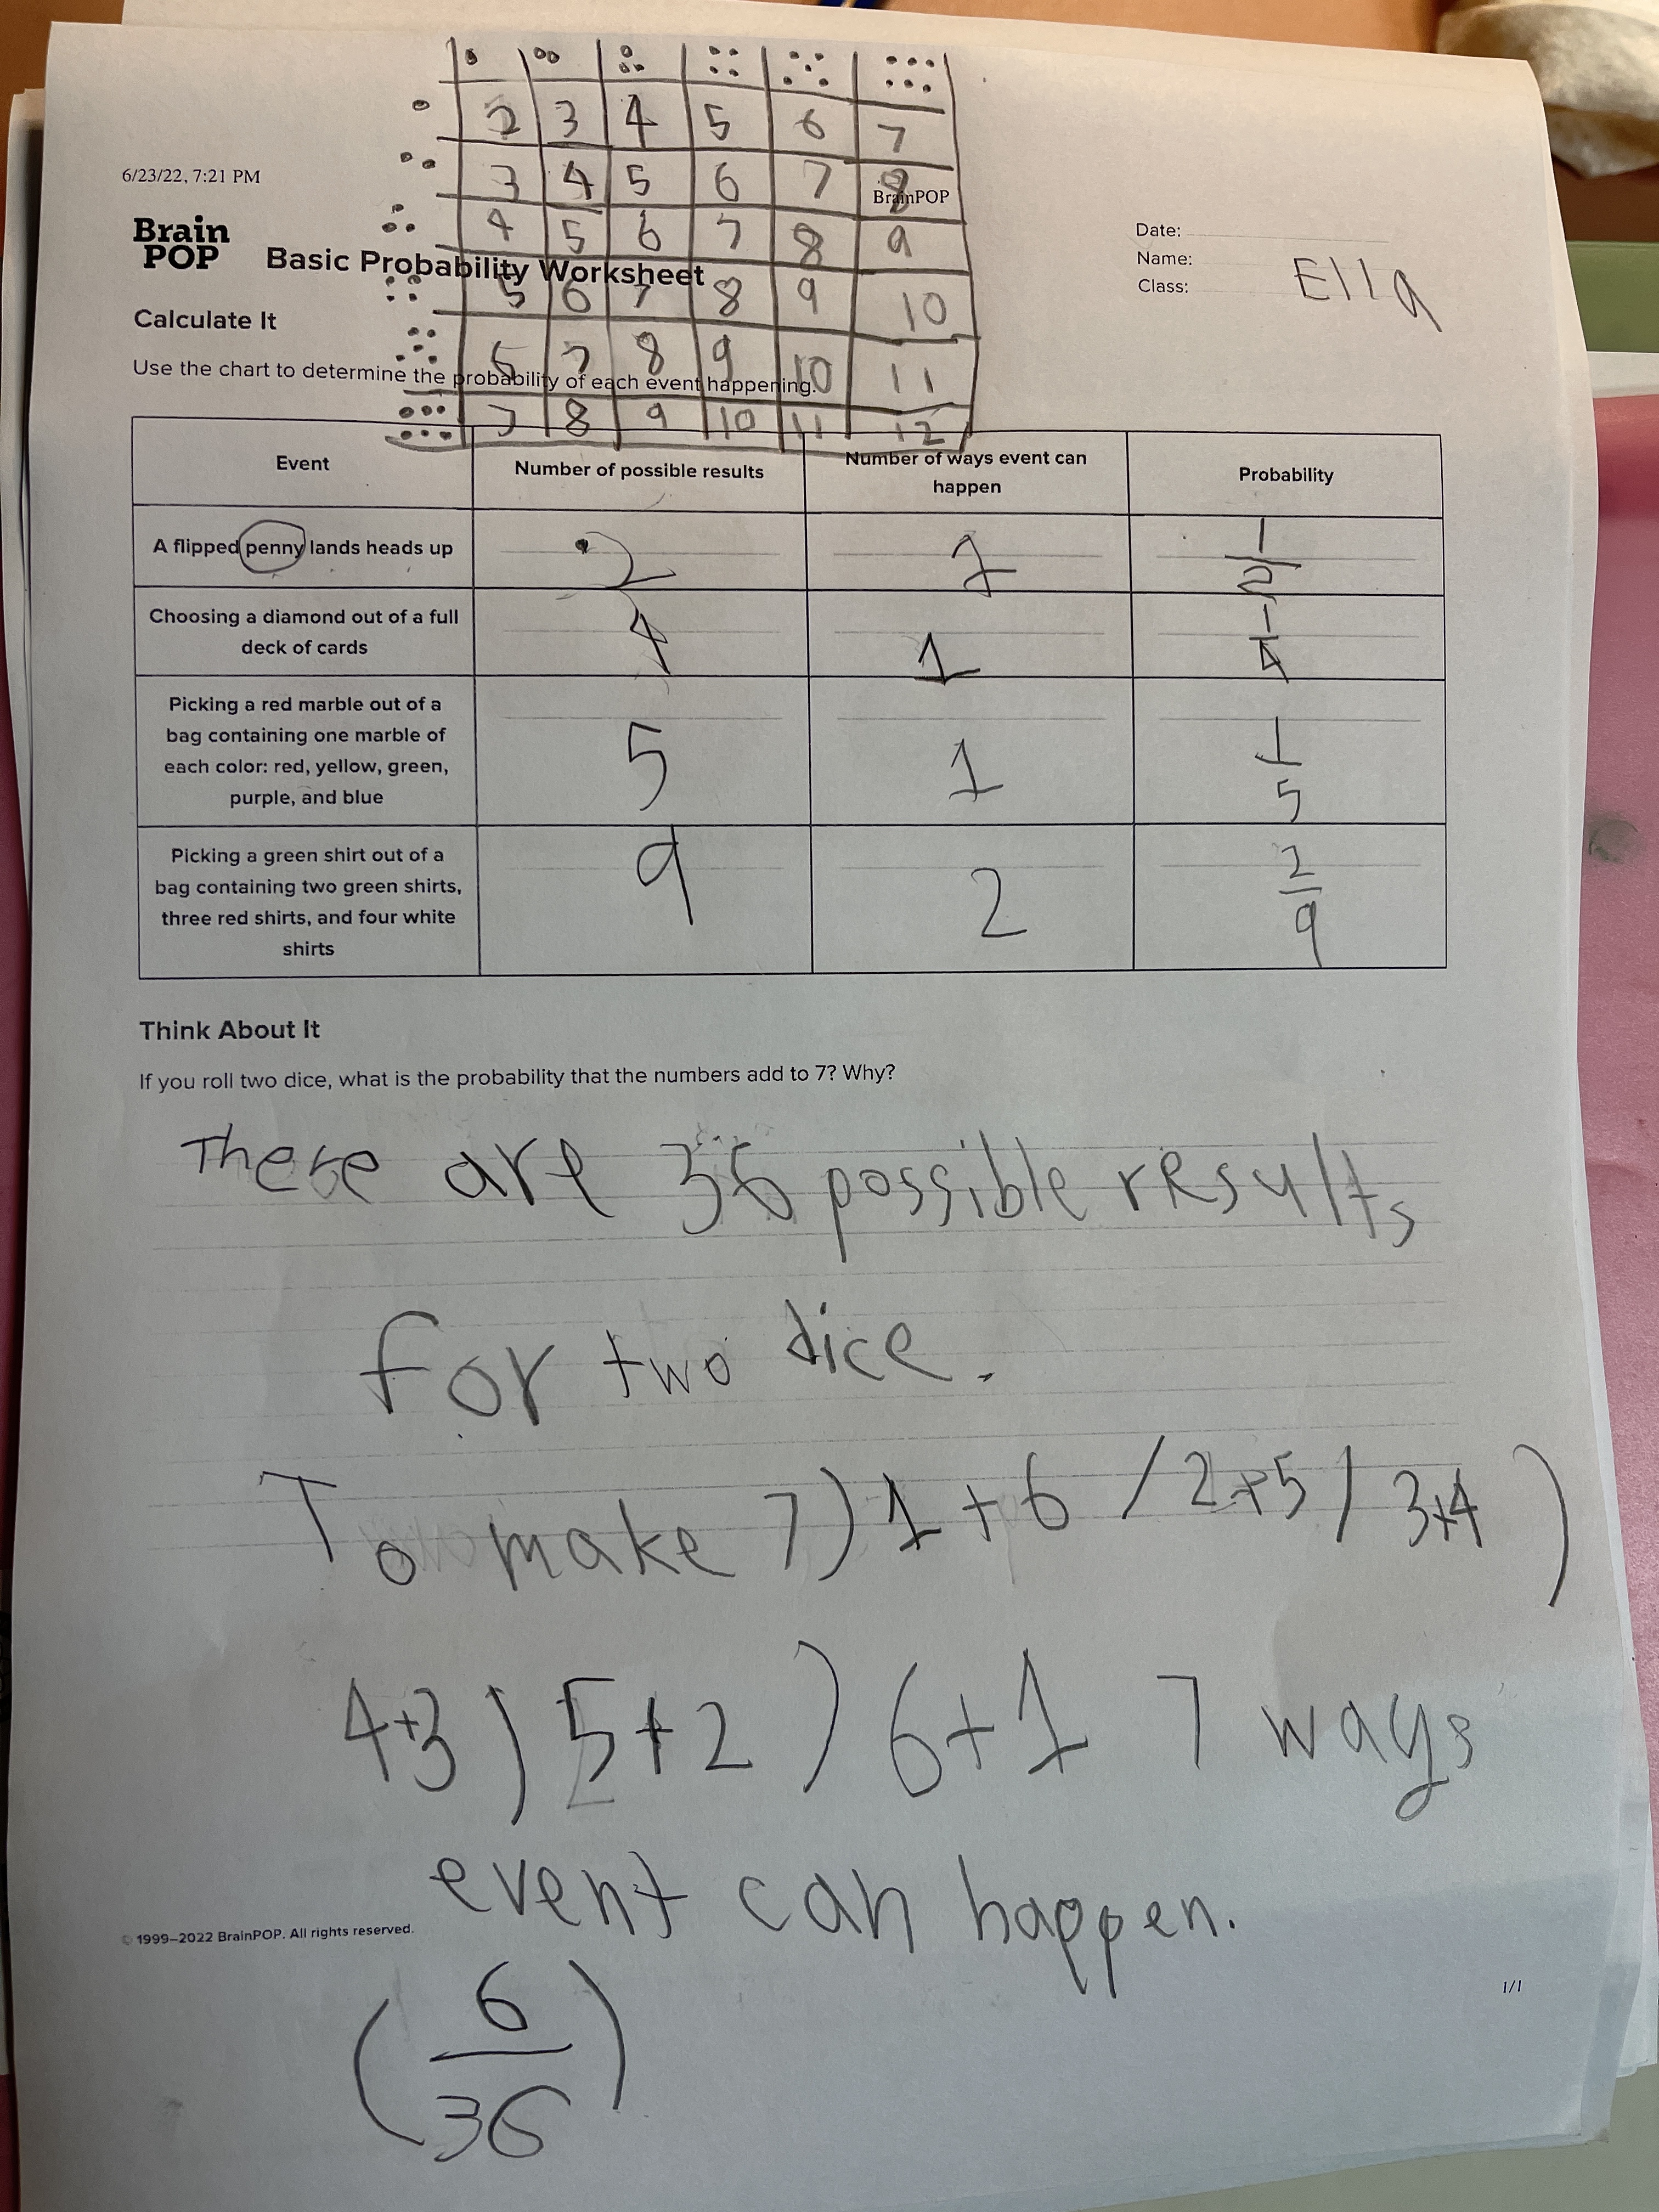 2 3 4 5 6 7
6/23/22, 7:21 PM
3 4 5 6 7 8
BrainPOP
4 5 6 7 8 9
Brain
POP
Basic Probability Worksheet
Date:
Name:
Class:
Ella
5 6 7 8 9 10
Calculate It
6 7 8 9 10 11
Use the chart to determine the probability of each event happening.
7 8 9 10 11 12
Event
Number of possible results
Number of ways event can
happen
Probability
A flipped penny lands heads up
2
1
1/2
Choosing a diamond out of a full
deck of cards
4
1
1/4
Picking a red marble out of a
bag containing one marble of
each color: red, yellow, green,
purple, and blue
5
1
1/5
Picking a green shirt out of a
bag containing two green shirts,
three red shirts, and four white
shirts
9
2
2/9
Think About It
If you roll two dice, what is the probability that the numbers add to 7? Why?
There are 36 possible results
for two dice.
To make 7) 1+6 / 2+5 / 3+4 )
4+3 ) 5+2 ) 6+1 7 ways
event can happen.
© 1999–2022 BrainPOP. All rights reserved.
1/1
(6/36)